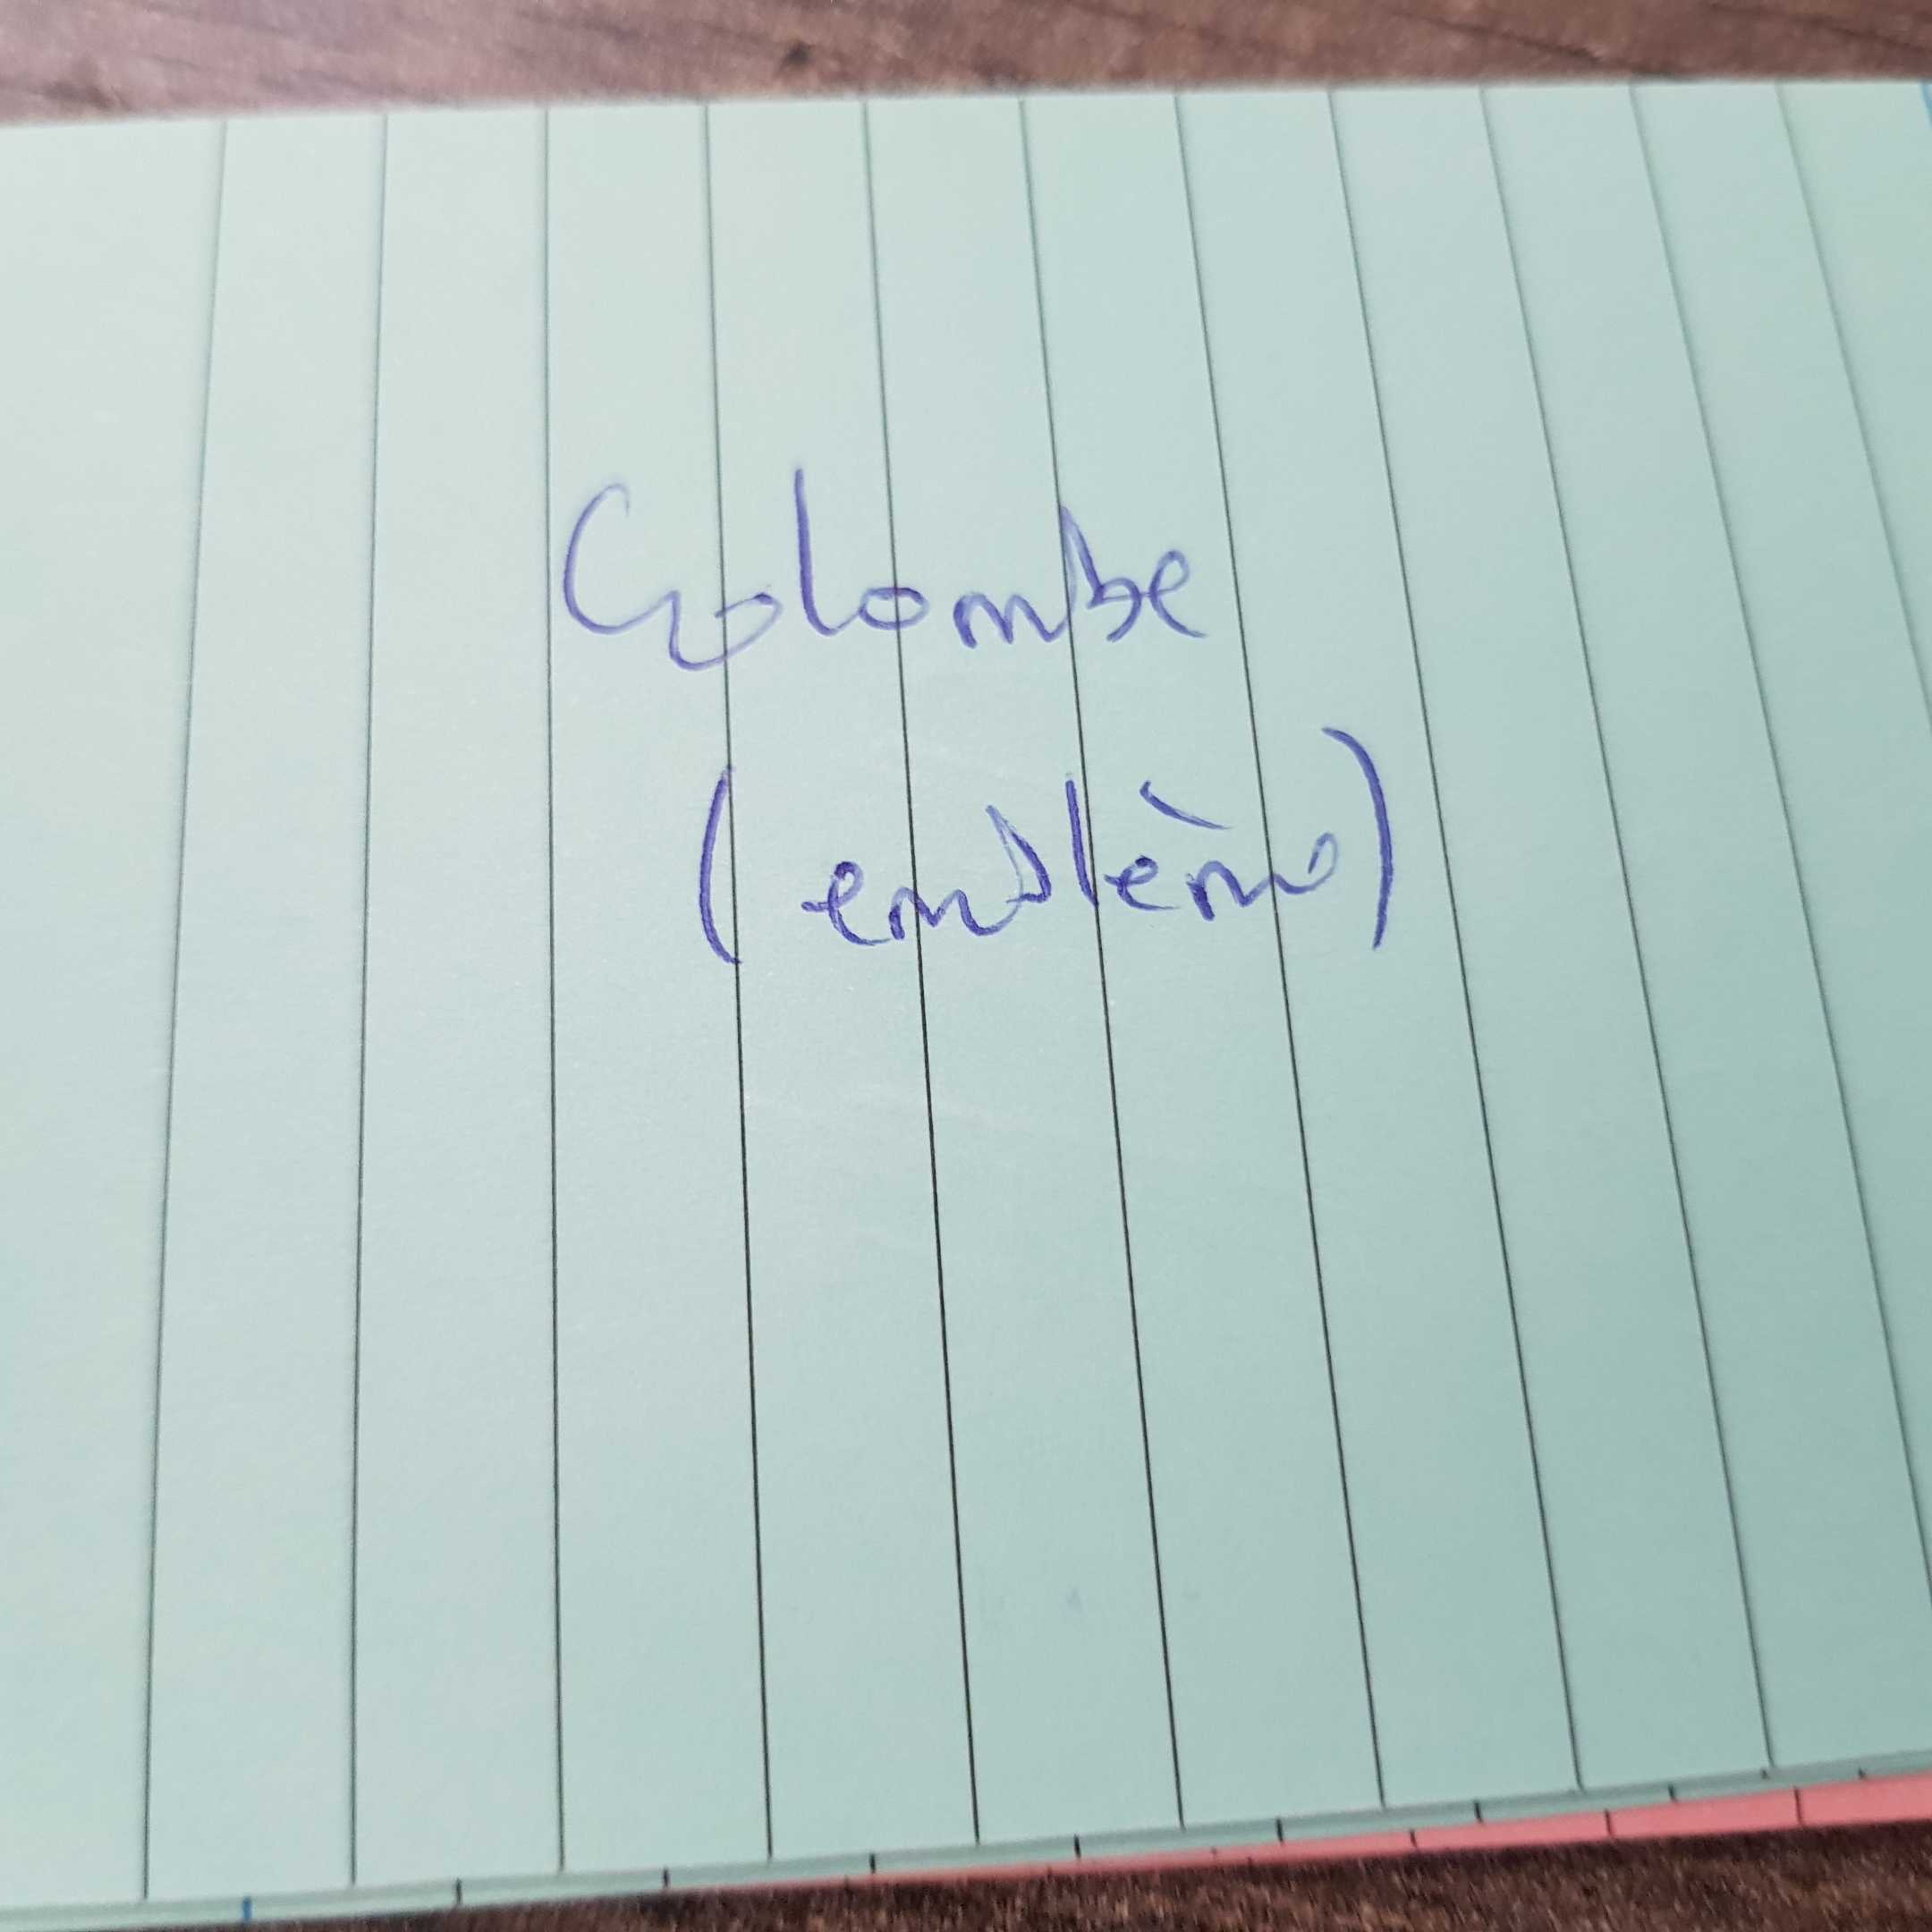 Colombe
(emblème)